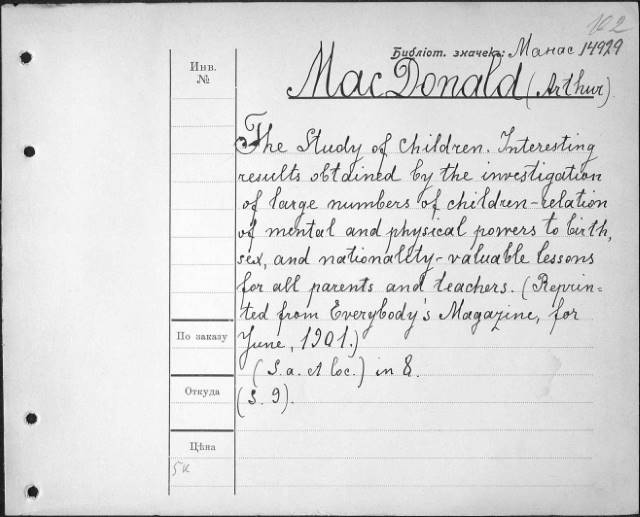 162
Библіот. значекъ: Манас 14929
Инв.
№
MacDonald (Arthur).
The Study of children. Interesting
results obtained by the investigation
of large numbers of children-relation
of mental and physical powers to birth,
sex, and nationality-valuable lessons
for all parents and teachers. (Reprin=
ted from Everybody's Magazine, for
По заказу
June, 1901.)
(S. a. et loc.) in 8.
Откуда
(S. 9).
Цѣна
5к